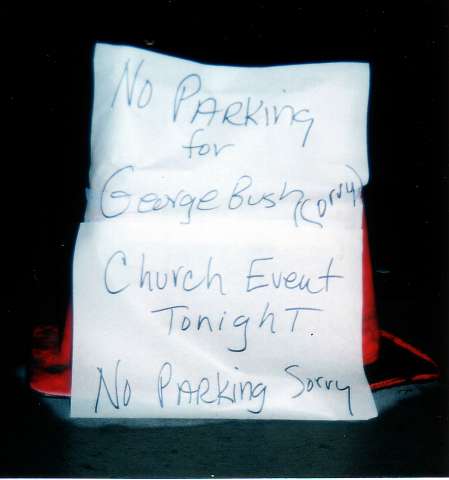 No PARKing
for
George Bush (sorry)
Church Event
TonighT.
No PARKing Sorry